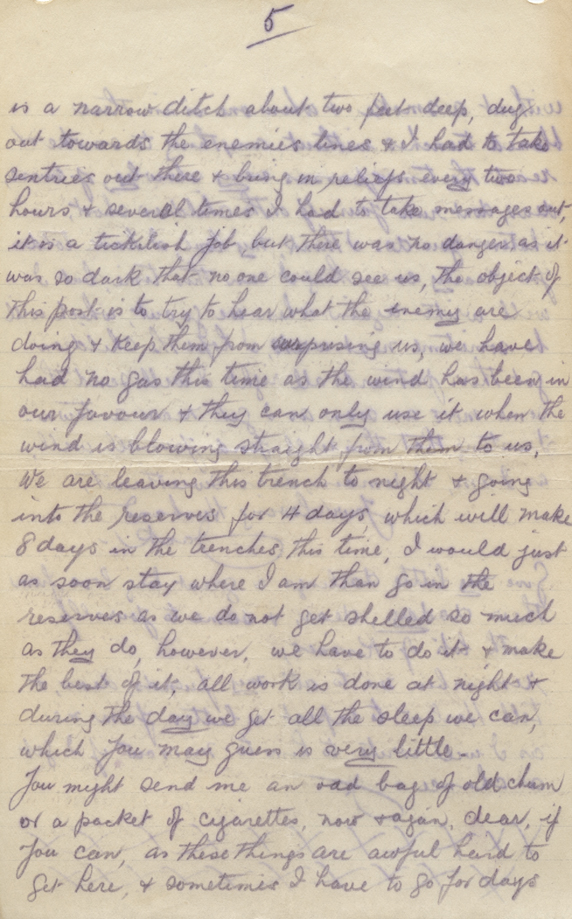 5
is a narrow ditch about two feet deep, dug
out towards the enemies lines & I had to take
sentries out there & bring in reliefs every two
hours & several times I had to take messages out,
it is a ticklish job but there was no danger as it
was so dark that no one could see us, the object of
this post is to try to hear what the enemy are
doing & keep them from surprising us, we have
had no gas this time as the wind has been in
our favour & they can only use it when the
wind is blowing straight from them to us.
We are leaving this trench to night & going
into the reserves for 4 days which will make
8 days in the trenches this time, I would just
as soon stay where I am than go in the
reserves as we do not get shelled so much
as they do, however, we have to do it & make
the best of it, all work is done at night &
during the day we get all the sleep we can,
which you may guess is very little.
You might send me an odd bag of old chum
or a packet of cigarettes, now & again, dear, if
you can, as these things are awful hard to
get here, & sometimes I have to go for days